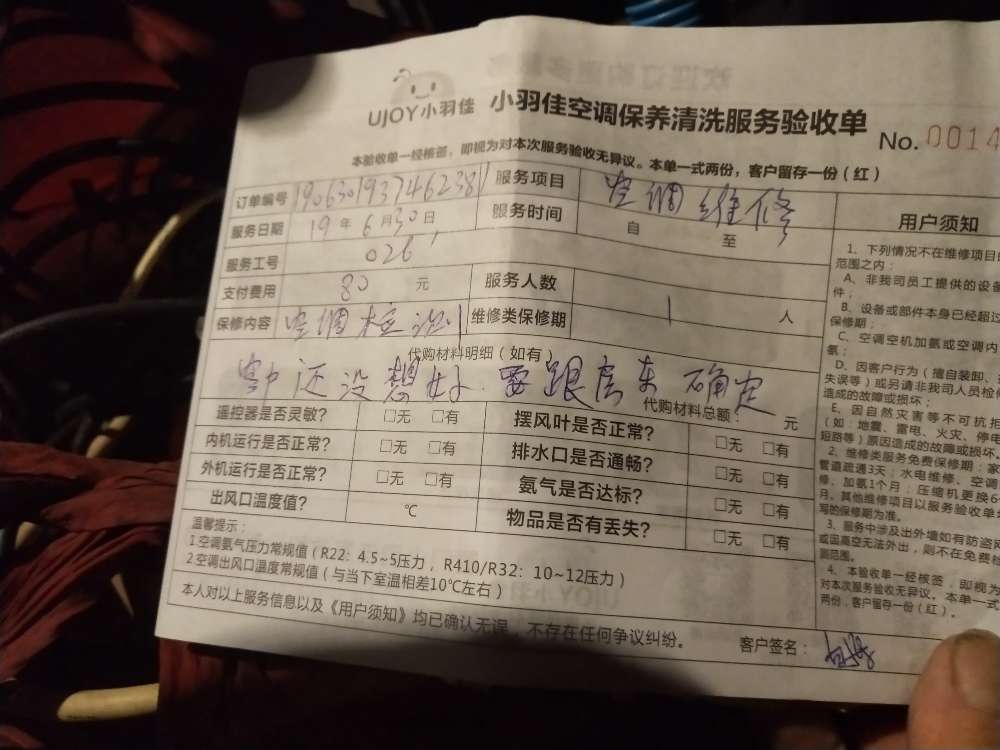 UJOY小羽佳 小羽佳空调保养清洗服务验收单
No. 0014
本验收单一经核签，即视为对本次服务验收无异议。本单一式两份，客户留存一份（红）
订单编号 190630193746238 服务项目 空调维修
服务日期 19 年 6 月 30 日 服务时间 自 至
服务工号 026
支付费用 80 元 服务人数 1 人
保修内容 空调检测 维修类保修期
代购材料明细（如有）
客户还没想好，要跟房东确定
代购材料总额： 元
遥控器是否灵敏？ □无 □有 摆风叶是否正常？ □无 □有
内机运行是否正常？ □无 □有 排水口是否通畅？ □无 □有
外机运行是否正常？ □无 □有 氨气是否达标？ □无 □有
出风口温度值？ ℃ 物品是否有丢失？ □无 □有
温馨提示：
1.空调氨气压力常规值（R22：4.5~5压力，R410/R32：10~12压力）
2.空调出风口温度常规值（与当下室温相差10℃左右）
本人对以上服务信息以及《用户须知》均已确认无误，不存在任何争议纠纷。
客户签名：
用户须知
1、下列情况不在维修项目的
范围之内：
A、非我司员工提供的设备
件；
B、设备或部件本身已经超过
保修期；
C、空调空机加氨或空调内
氨；
D、因客户行为（擅自装卸、
失误等）或另请非我司人员检修
造成的故障或损坏；
E、因自然灾害等不可抗拒
（如：地震、雷电、火灾、停电
短路等）原因造成的故障或损坏。
2、维修类服务免费保修期：家
管道疏通3天；水电维修、空调
修、加氨1个月；压缩机更换6
月。其他维修项目以服务验收单
写的保修期为准。
3、服务中涉及出外墙如有防盗网
或因高空无法外出，则不在免费
测范围。
4、本验收单一经核签，即视为
对本次服务验收无异议。本单一式
两份，客户留存一份（红）。